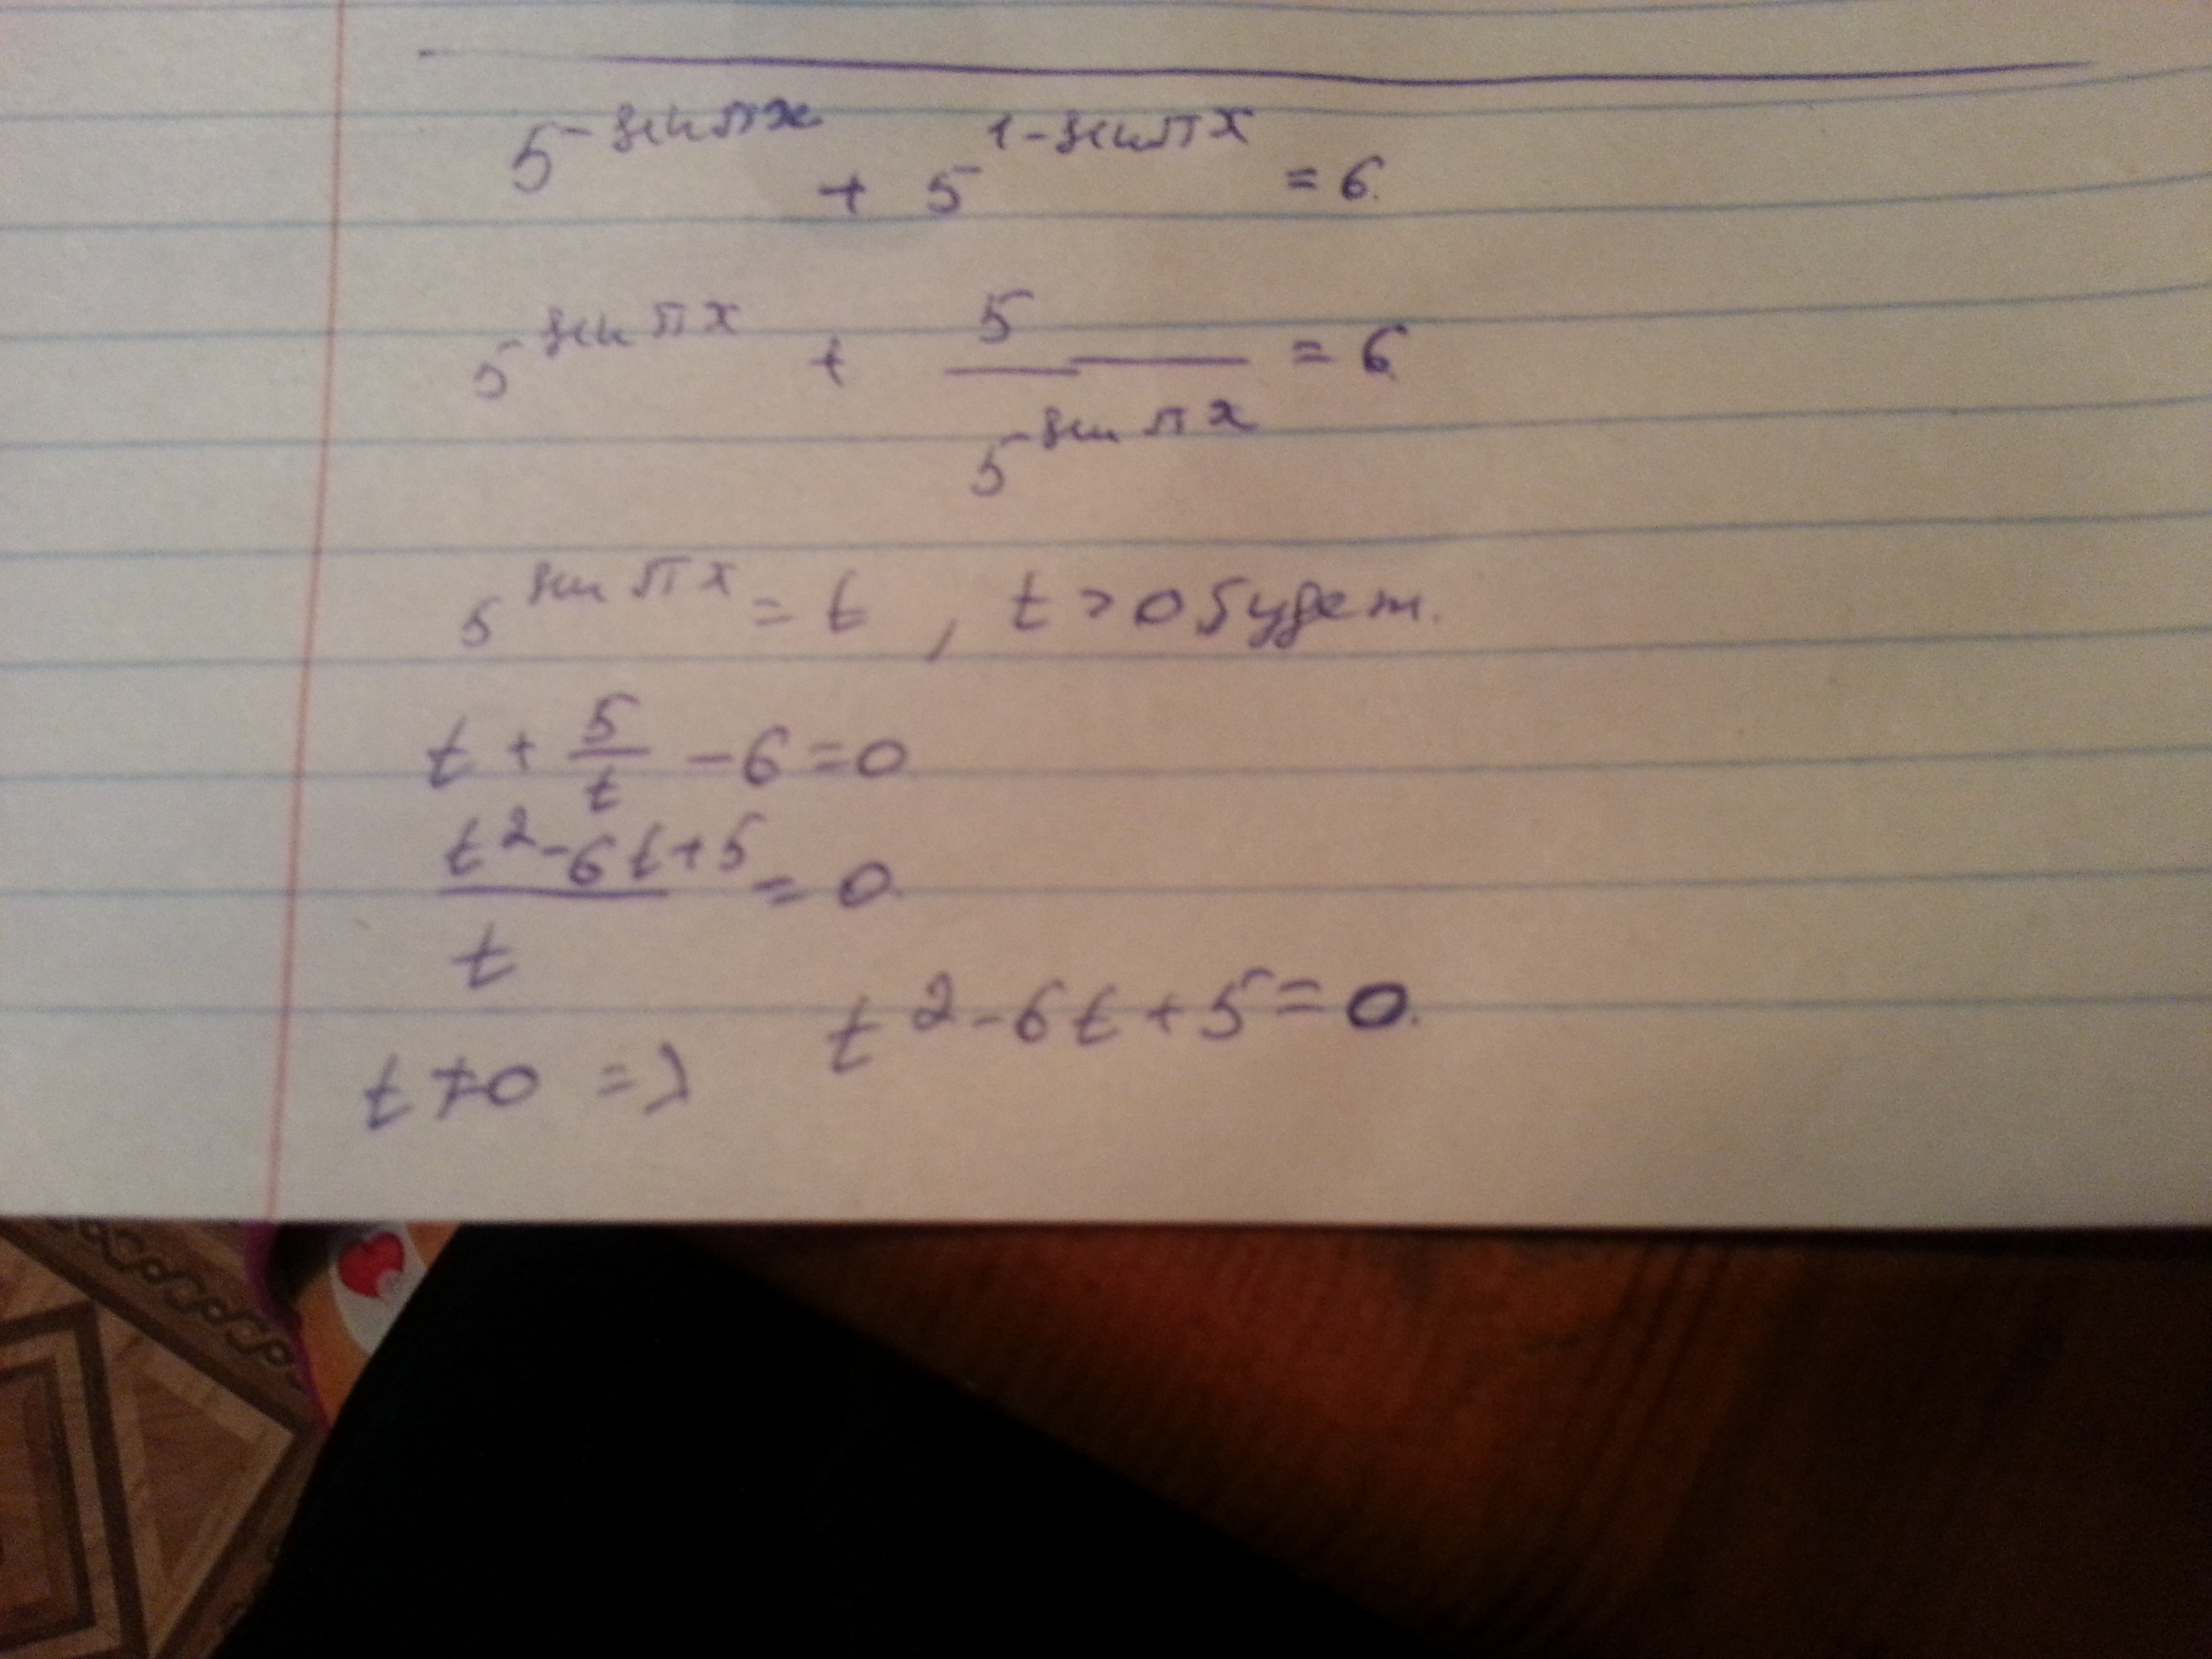 5^{-sin πx} + 5^{1-sin πx} = 6.
5^{sin πx} + \frac{5}{5^{sin πx}} = 6.
5^{sin πx} = t, t > 0 будет.
t + \frac{5}{t} - 6 = 0
\frac{t^2 - 6t + 5}{t} = 0.
t ≠ 0 => t^2 - 6t + 5 = 0.